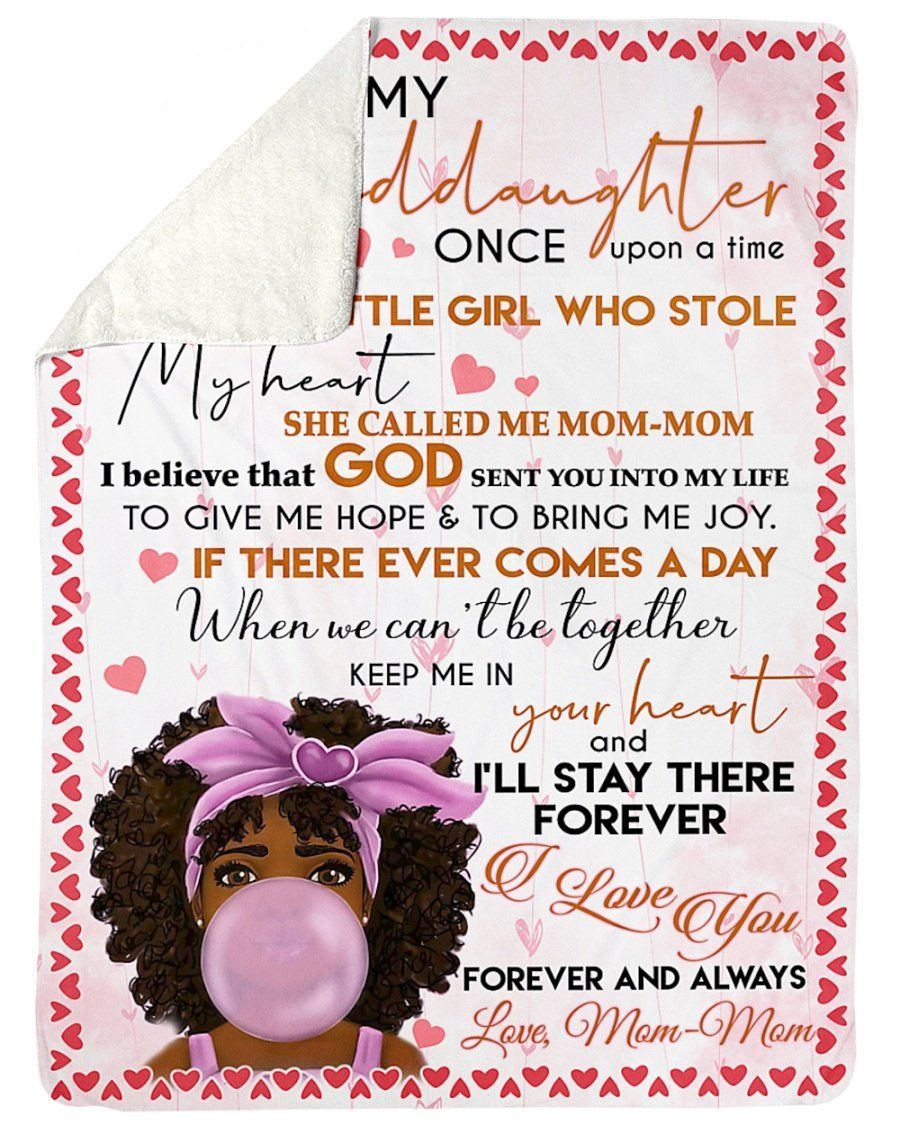 MY
ddaughter
ONCE upon a time
TTLE GIRL WHO STOLE
My heart
SHE CALLED ME MOM-MOM
I believe that GOD SENT YOU INTO MY LIFE
TO GIVE ME HOPE & TO BRING ME JOY.
IF THERE EVER COMES A DAY
When we can't be together
KEEP ME IN
your heart
and
I'LL STAY THERE
FOREVER
I Love You
FOREVER AND ALWAYS
Love, Mom-Mom